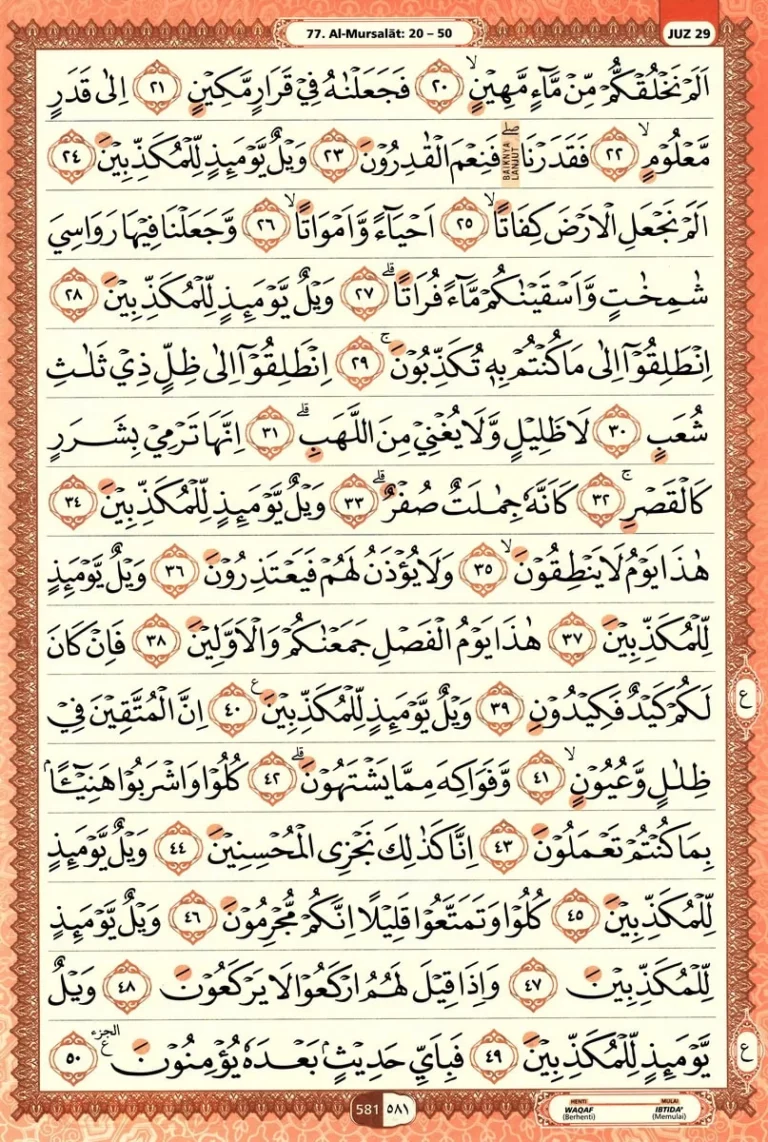 77. Al-Mursalāt: 20 – 50
JUZ 29
اَلَمْ نَخْلُقْكُّمْ مِّنْ مَّاۤءٍ مَّهِيْنٍۙ ٢٠ فَجَعَلْنٰهُ فِيْ قَرَارٍ مَّكِيْنٍ ٢١ اِلٰى قَدَرٍ
مَّعْلُوْمٍۙ ٢٢ فَقَدَرْنَاۖ فَنِعْمَ الْقٰدِرُوْنَ ٢٣ وَيْلٌ يَّوْمَىِٕذٍ لِّلْمُكَذِّبِيْنَ ٢٤
BAIKNYA LANJUT
اَلَمْ نَجْعَلِ الْاَرْضَ كِفَاتًاۙ ٢٥ اَحْيَاۤءً وَّاَمْوَاتًاۙ ٢٦ وَّجَعَلْنَا فِيْهَا رَوَاسِيَ
شٰمِخٰتٍ وَّاَسْقَيْنٰكُمْ مَّاۤءً فُرَاتًاۗ ٢٧ وَيْلٌ يَّوْمَىِٕذٍ لِّلْمُكَذِّبِيْنَ ٢٨
اِنْطَلِقُوْٓا اِلٰى مَا كُنْتُمْ بِهٖ تُكَذِّبُوْنَۚ ٢٩ اِنْطَلِقُوْٓا اِلٰى ظِلٍّ ذِيْ ثَلٰثِ
شُعَبٍ ٣٠ لَا ظَلِيْلٍ وَّلَا يُغْنِيْ مِنَ اللَّهَبِۗ ٣١ اِنَّهَا تَرْمِيْ بِشَرَرٍ
كَالْقَصْرِۚ ٣٢ كَاَنَّهٗ جِمٰلَتٌ صُفْرٌۗ ٣٣ وَيْلٌ يَّوْمَىِٕذٍ لِّلْمُكَذِّبِيْنَ ٣٤
هٰذَا يَوْمُ لَا يَنْطِقُوْنَۙ ٣٥ وَلَا يُؤْذَنُ لَهُمْ فَيَعْتَذِرُوْنَ ٣٦ وَيْلٌ يَّوْمَىِٕذٍ
لِّلْمُكَذِّبِيْنَ ٣٧ هٰذَا يَوْمُ الْفَصْلِ جَمَعْنٰكُمْ وَالْاَوَّلِيْنَ ٣٨ فَاِنْ كَانَ
لَكُمْ كَيْدٌ فَكِيْدُوْنِ ٣٩ وَيْلٌ يَّوْمَىِٕذٍ لِّلْمُكَذِّبِيْنَ ࣖ ٤٠ اِنَّ الْمُتَّقِيْنَ فِيْ
ع
ظِلٰلٍ وَّعُيُوْنٍۙ ٤١ وَّفَوَاكِهَ مِمَّا يَشْتَهُوْنَۗ ٤٢ كُلُوْا وَاشْرَبُوْا هَنِيْۤـًٔا ۢ
بِمَا كُنْتُمْ تَعْمَلُوْنَ ٤٣ اِنَّا كَذٰلِكَ نَجْزِى الْمُحْسِنِيْنَ ٤٤ وَيْلٌ يَّوْمَىِٕذٍ
لِّلْمُكَذِّبِيْنَ ٤٥ كُلُوْا وَتَمَتَّعُوْا قَلِيْلًا اِنَّكُمْ مُّجْرِمُوْنَ ٤٦ وَيْلٌ يَّوْمَىِٕذٍ
لِّلْمُكَذِّبِيْنَ ٤٧ وَاِذَا قِيْلَ لَهُمُ ارْكَعُوْا لَا يَرْكَعُوْنَ ٤٨ وَيْلٌ
يَّوْمَىِٕذٍ لِّلْمُكَذِّبِيْنَ ٤٩ فَبِاَيِّ حَدِيْثٍۢ بَعْدَهٗ يُؤْمِنُوْنَ ࣖ الجزء ٥٠
ع
581 ٥٨١
HENTI MULAI
WAQAF IBTIDA'
(Berhenti) (Memulai)